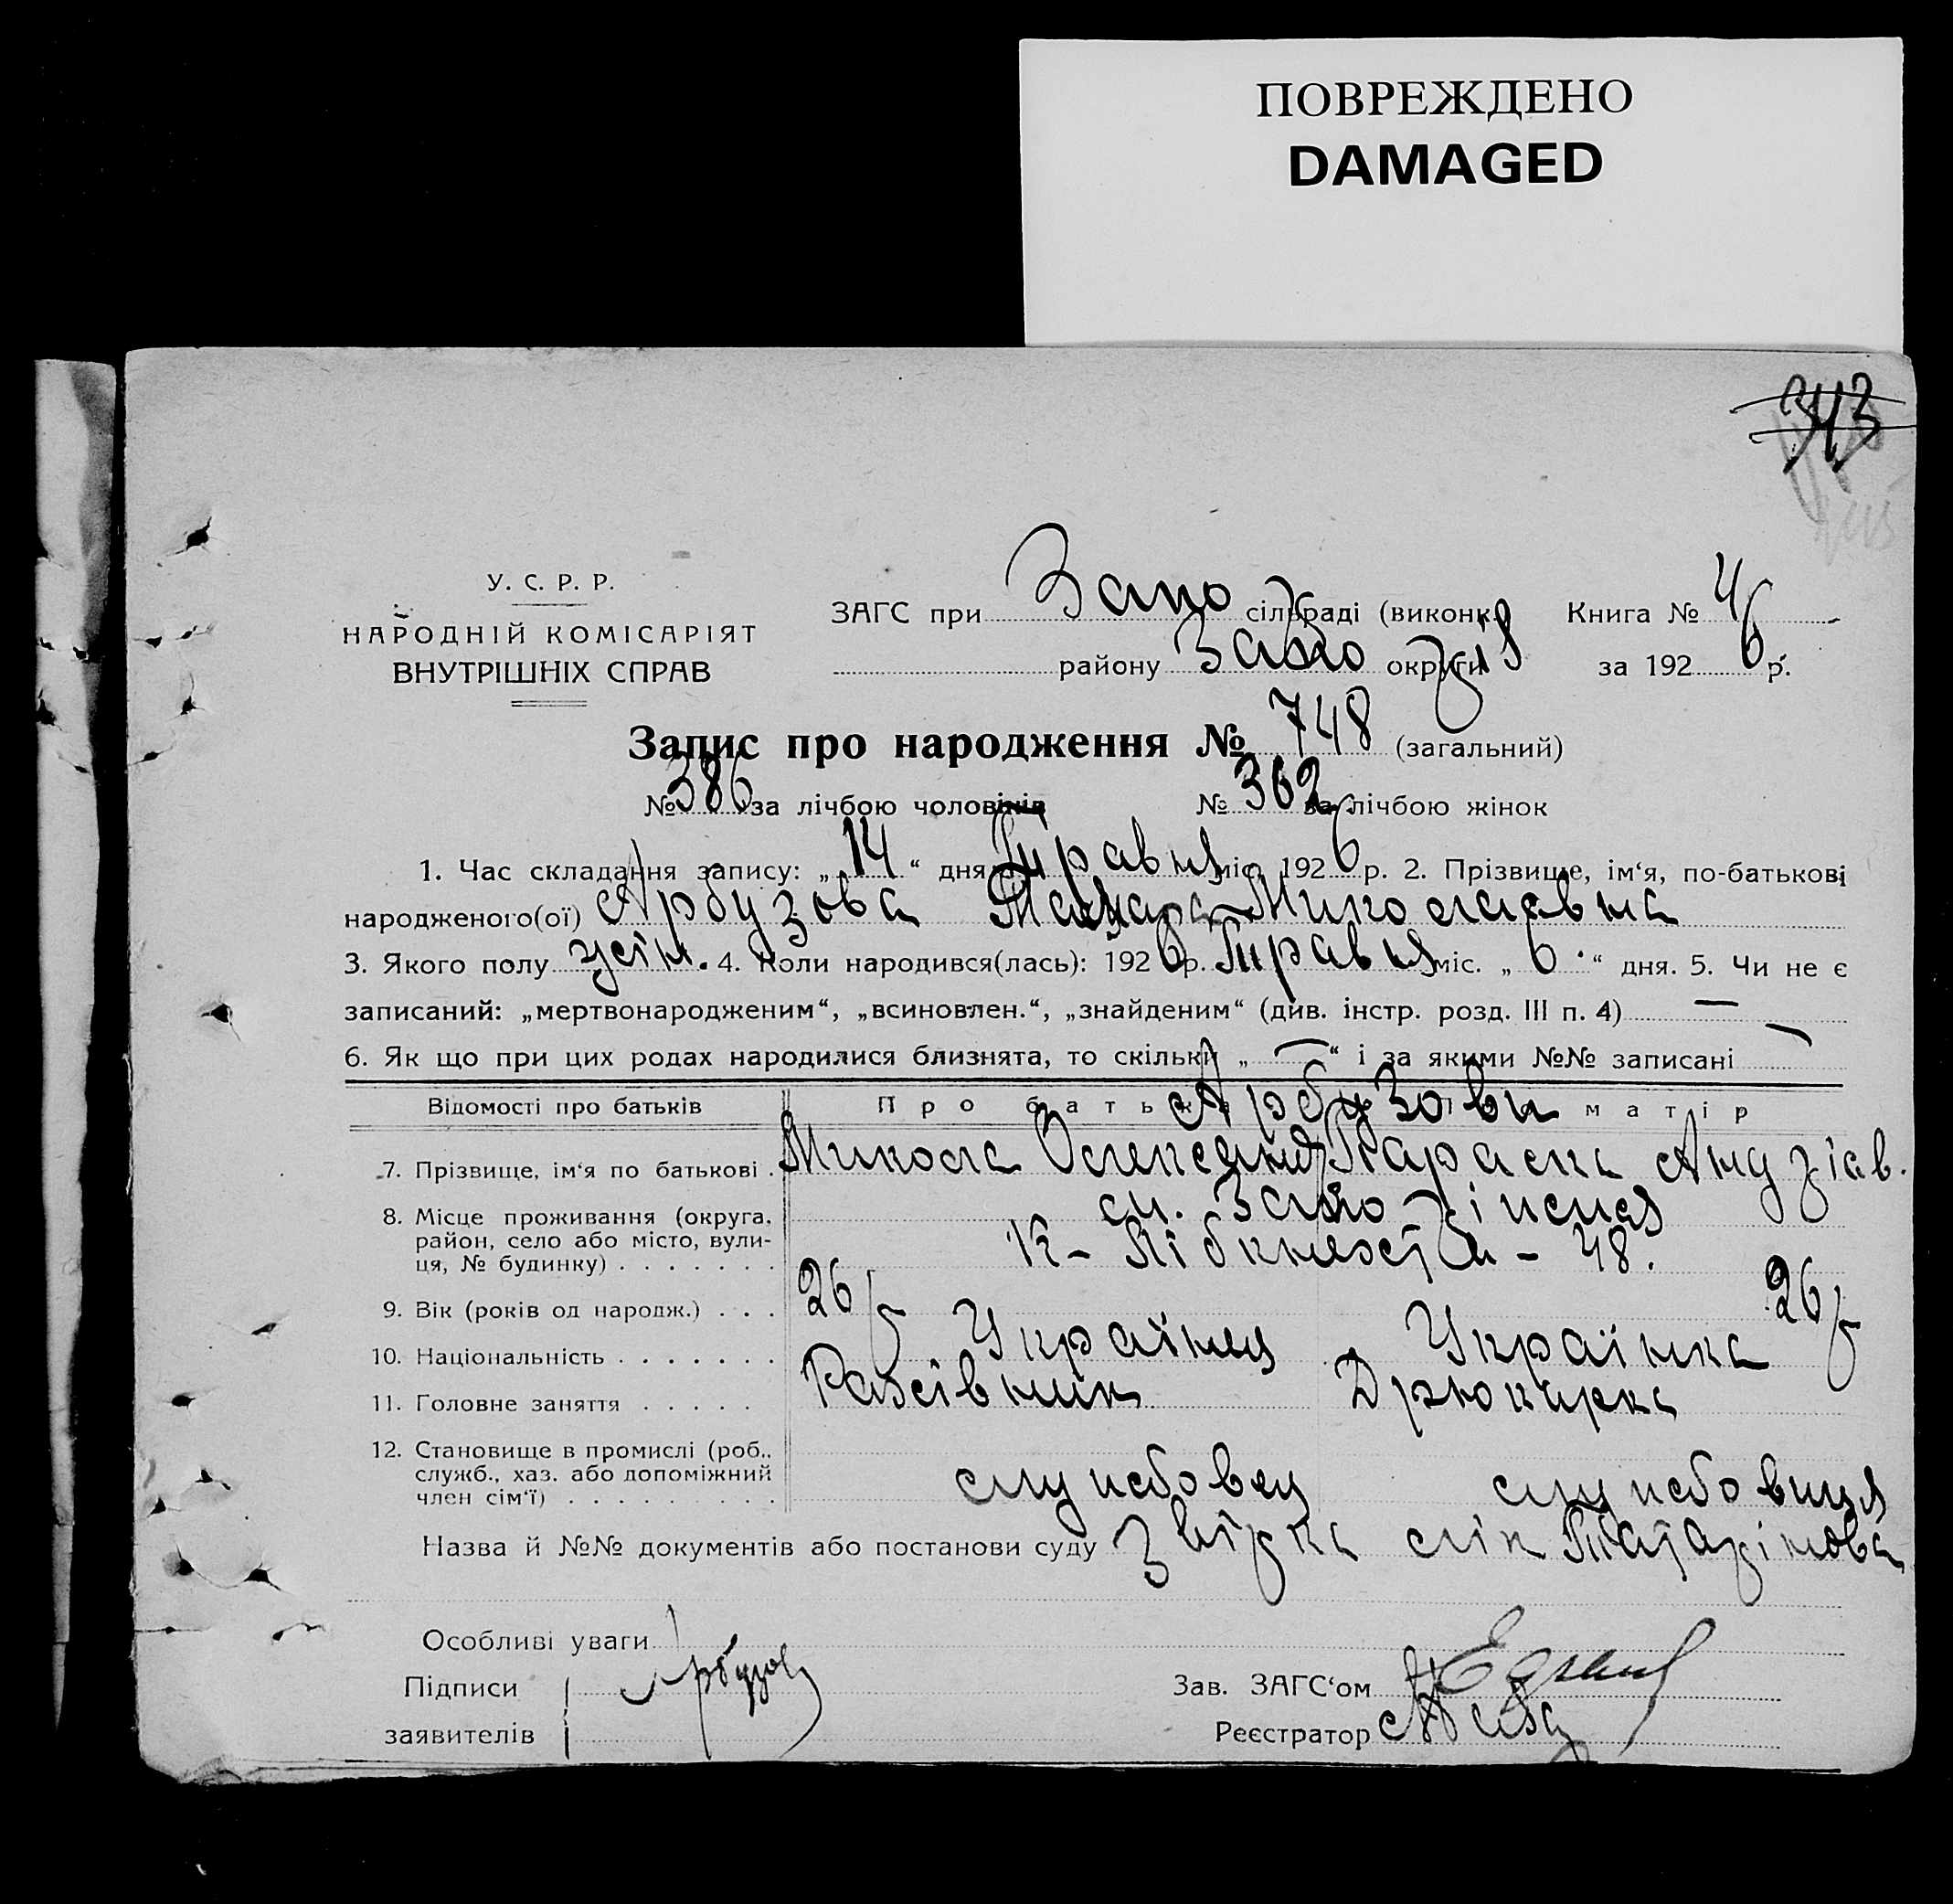 ПОВРЕЖДЕНО
DAMAGED
343
У. С. Р. Р.
НАРОДНІЙ КОМІСАРІЯТ
ВНУТРІШНІХ СПРАВ
ЗАГС при Запо сільраді (виконк.) Книга № 4
району Запо округи за 1926 р.
Запис про народження № 748 (загальний)
№ 386 за лічбою чоловіків № 362 за лічбою жінок
1. Час складання запису: „14“ дня Травня міс. 1926 р. 2. Прізвище, ім‘я, по-батькові
народженого(ої) Арбузова Тамара Миколаївна
3. Якого полу жін. 4. Коли народився(лась): 1926 р. Травня міс. „6“ дня. 5. Чи не є
записаний: „мертвонародженим“, „всиновлен.“, „знайденим“ (див. інстр. розд. III п. 4) —
6. Як що при цих родах народилися близнята, то скільки „—“ і за якими №№ записані —
Відомості про батьків Про батька Про матір
Арбузови
7. Прізвище, ім‘я по батькові . Микола Параска
8. Місце проживання (округа, район, село або місто, вулиця, № будинку) . . . . . . . м. Запоріжжя
К-Лібкнехта - 48.
9. Вік (років од народж.) . . . 26 26
10. Національність . . . . . . . Українец Українка
11. Головне заняття . . . . . Друкарка
12. Становище в промислі (роб., служб., хаз. або допоміжний член сім‘ї) . . . . . . . . . службовец службовиця
Назва й №№ документів або постанови суду Татарінова
Особливі уваги
Підписи заявителів Арбузов
Зав. ЗАГС‘ом
Реєстратор